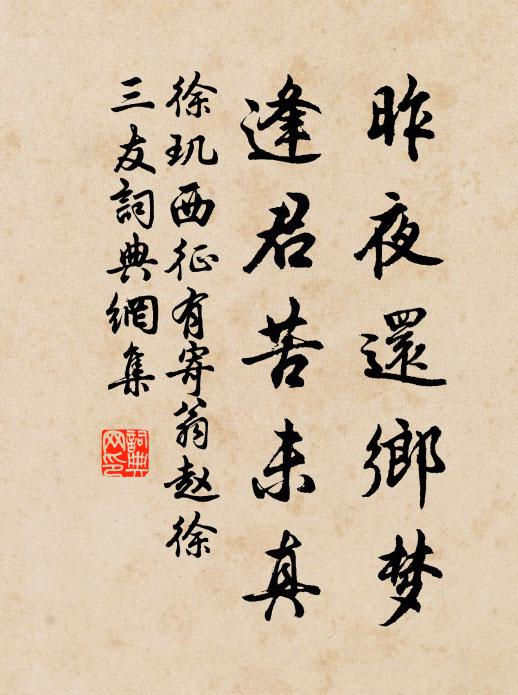 昨夜還鄉梦
逢君苦未真
徐玑西征有寄翁赵徐
三友詞典網集
詞典网印